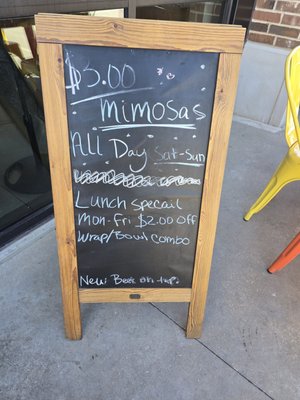 $3.00
Mimosas
All Day Sat-Sun
Lunch Specail
Mon-Fri $2.00 off
Wrap/Bowl Combo
New Beer on tap!